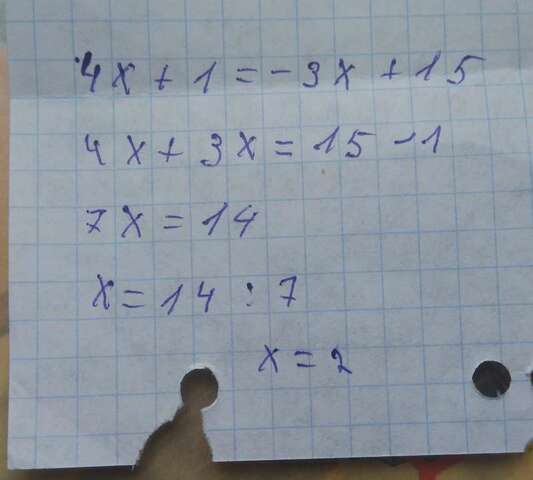 4x + 1 = -3x + 15
4x + 3x = 15 - 1
7x = 14
x = 14 : 7
x = 2